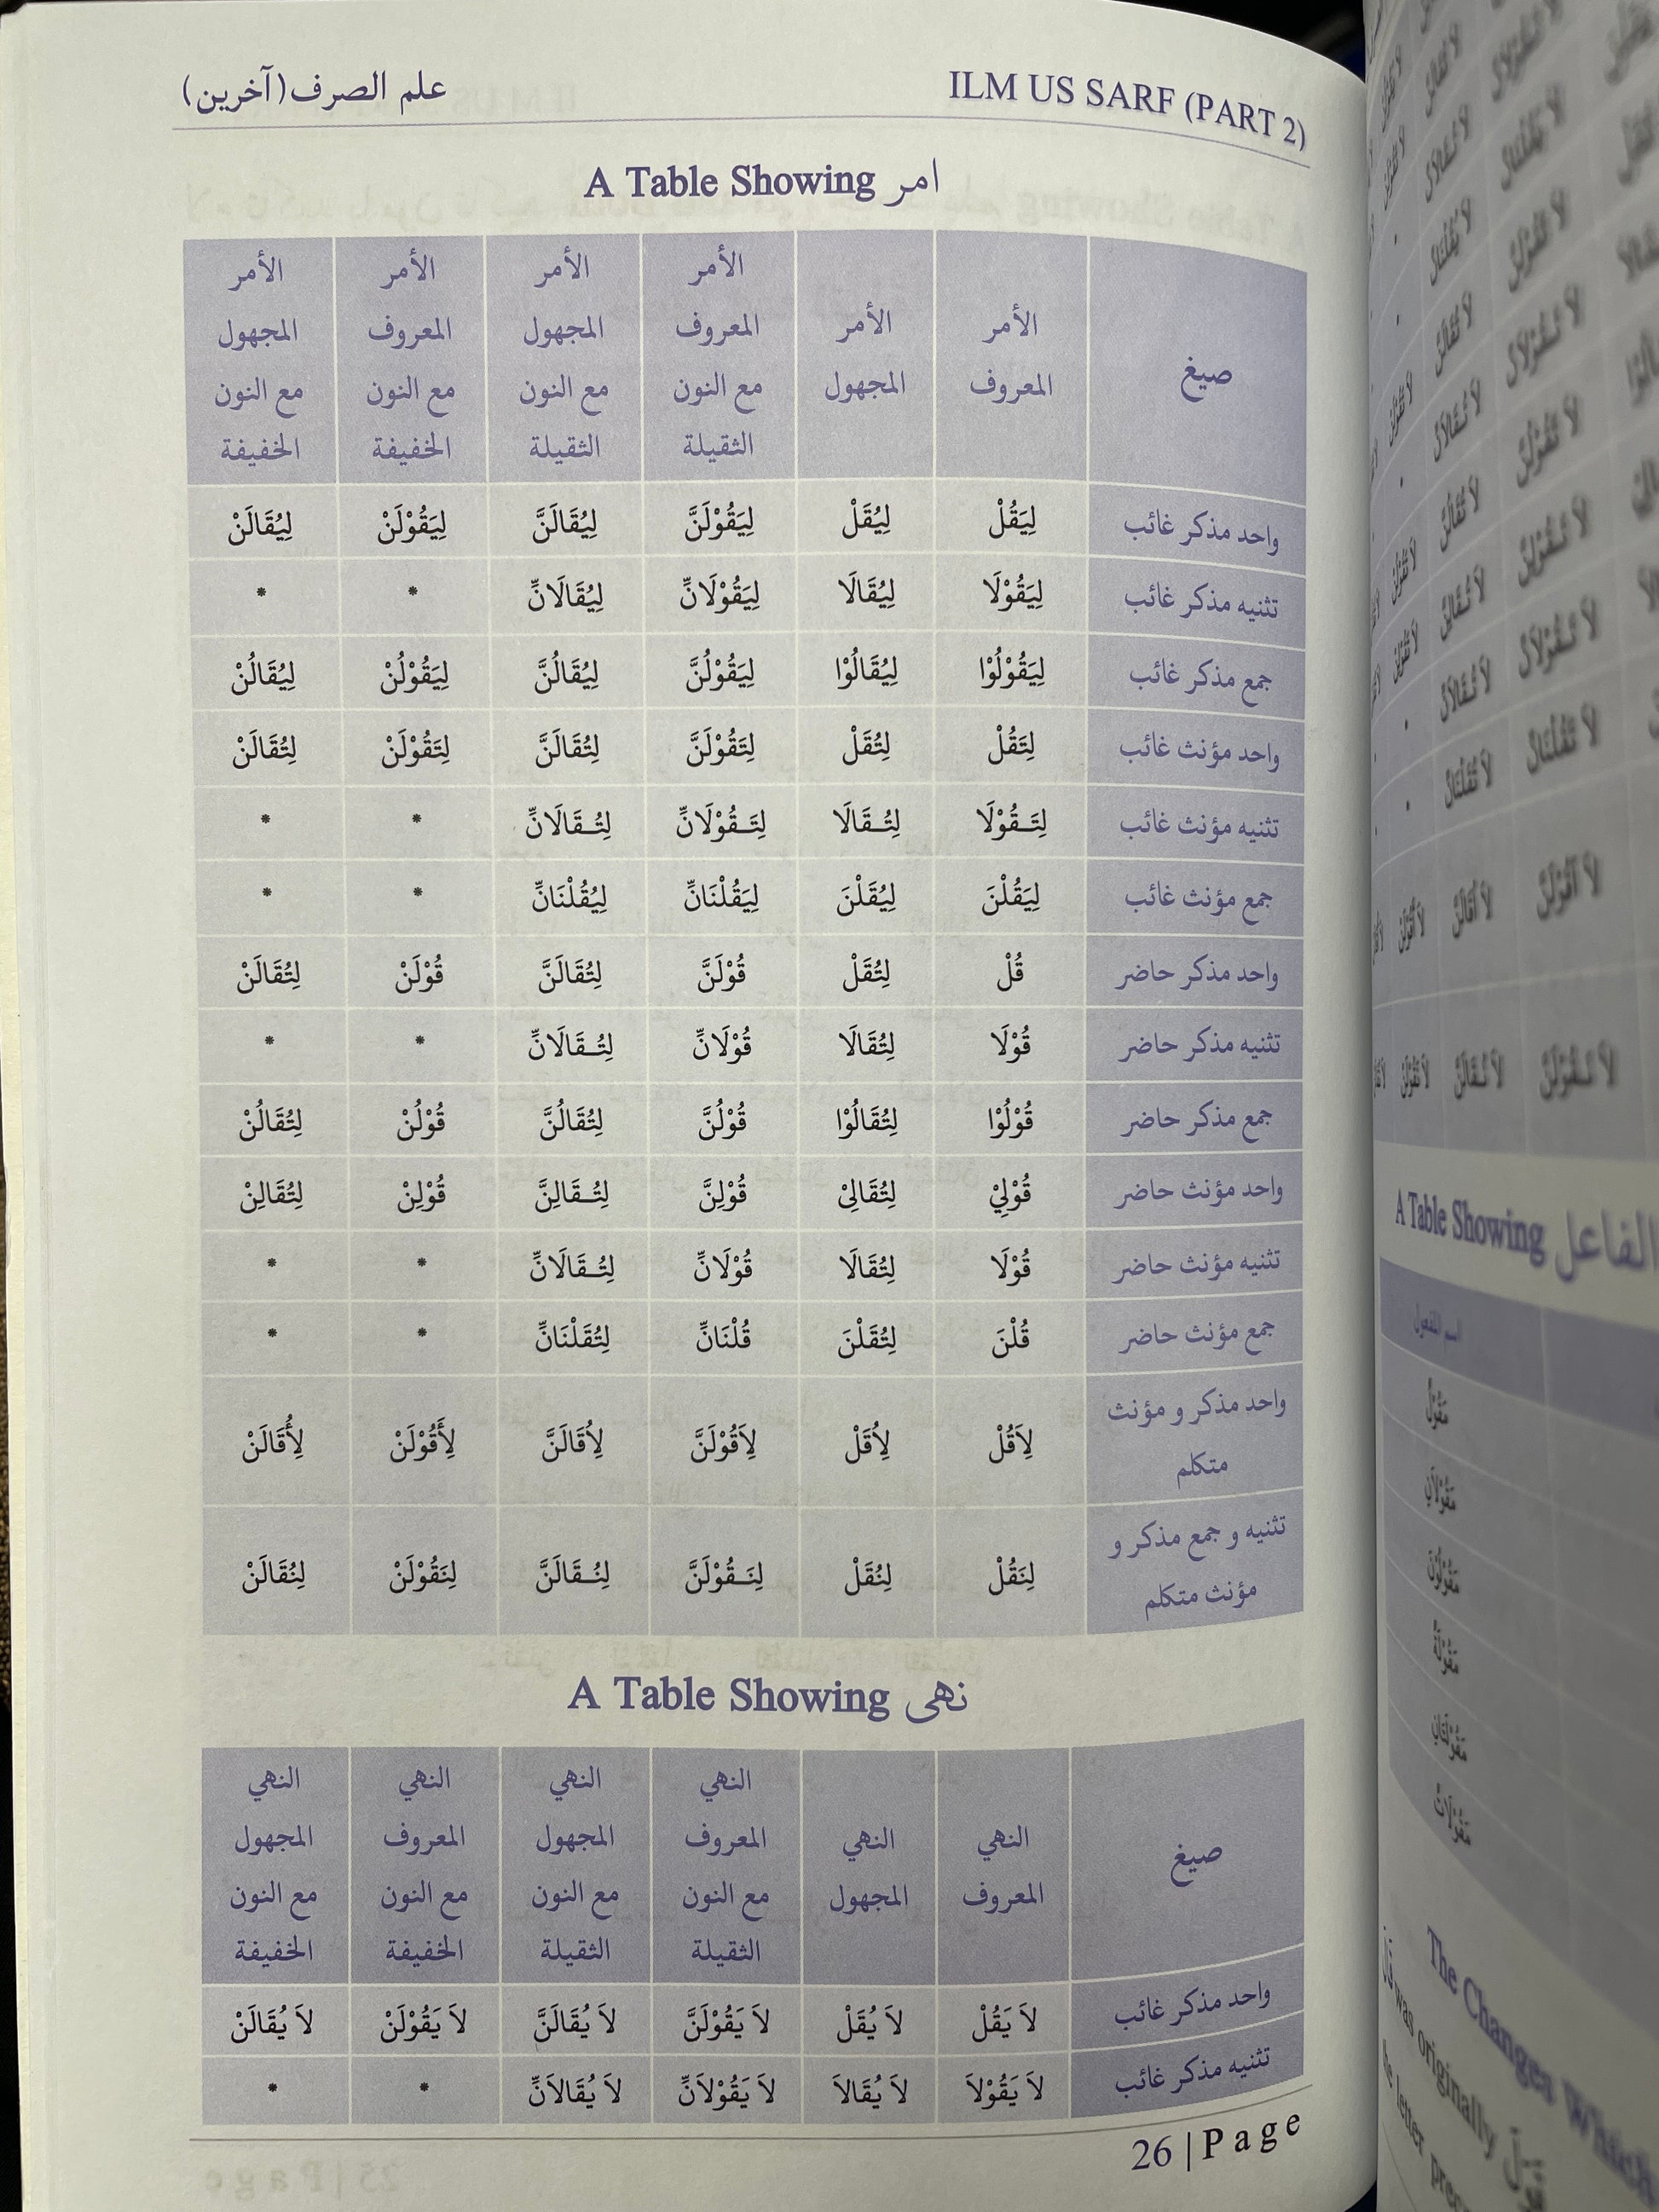 علم الصرف(آخرين) ILM US SARF (PART 2)
A Table Showing امر
صيغ الأمر المعروف الأمر المجهول الأمر المعروف مع النون الثقيلة الأمر المجهول مع النون الثقيلة الأمر المعروف مع النون الخفيفة الأمر المجهول مع النون الخفيفة
واحد مذكر غائب لِيَقُلْ لِيُقَلْ لِيَقُوْلَنَّ لِيُقَالَنَّ لِيَقُوْلَنْ لِيُقَالَنْ
تثنيه مذكر غائب لِيَقُوْلَا لِيُقَالَا لِيَقُوْلَانِّ لِيُقَالَانِّ * *
جمع مذكر غائب لِيَقُوْلُوْا لِيُقَالُوْا لِيَقُوْلُنَّ لِيُقَالُنَّ لِيَقُوْلُنْ لِيُقَالُنْ
واحد مؤنث غائب لِتَقُلْ لِتُقَلْ لِتَقُوْلَنَّ لِتُقَالَنَّ لِتَقُوْلَنْ لِتُقَالَنْ
تثنيه مؤنث غائب لِتَـقُوْلَا لِتُـقَالَا لِتَـقُوْلَانِّ لِتُـقَالَانِّ * *
جمع مؤنث غائب لِيَقُلْنَ لِيُقَلْنَ لِيَقُلْنَانِّ لِيُقُلْنَانِّ * *
واحد مذكر حاضر قُلْ لِتُقَلْ قُوْلَنَّ لِتُقَالَنَّ قُوْلَنْ لِتُقَالَنْ
تثنيه مذكر حاضر قُوْلَا لِتُقَالَا قُوْلَانِّ لِتُـقَالَانِّ * *
جمع مذكر حاضر قُوْلُوْا لِتُقَالُوْا قُوْلُنَّ لِتُقَالُنَّ قُوْلُنْ لِتُقَالُنْ
واحد مؤنث حاضر قُوْلِيْ لِتُقَالِىْ قُوْلِنَّ لِتُـقَالِنَّ قُوْلِنْ لِتُقَالِنْ
تثنيه مؤنث حاضر قُوْلَا لِتُقَالَا قُوْلَانِّ لِتُـقَالَانِّ * *
جمع مؤنث حاضر قُلْنَ لِتُقَلْنَ قُلْنَانِّ لِتُقَلْنَانِّ * *
واحد مذكر و مؤنث متكلم لِاَقُلْ لِاُقَلْ لِاَقُوْلَنَّ لِاُقَالَنَّ لِأَقُوْلَنْ لِأُقَالَنْ
تثنيه و جمع مذكر و مؤنث متكلم لِنَقُلْ لِنُقَلْ لِنَـقُوْلَنَّ لِنُـقَالَنَّ لِنَقُوْلَنْ لِنُقَالَنْ
A Table Showing نهى
صيغ النهي المعروف النهي المجهول النهي المعروف مع النون الثقيلة النهي المجهول مع النون الثقيلة النهي المعروف مع النون الخفيفة النهي المجهول مع النون الخفيفة
واحد مذكر غائب لاَ يَقُلْ لاَ يُقَلْ لاَ يَقُوْلَنَّ لاَ يُقَالَنَّ لاَ يَقُوْلَنْ لاَ يُقَالَنْ
تثنيه مذكر غائب لاَ يَقُوْلاَ لاَ يُقَالاَ لاَ يَقُوْلاَنِّ لاَ يُقَالاَنِّ * *
26 | Page
A Table Showing الفاعل
اسم المفعول
مَقُوْلٌ
مَقُوْلَانِ
مَقُوْلُوْنَ
مَقُوْلَةٌ
مَقُوْلَتَانِ
مَقُوْلَاتٌ
The Changes Which
was originally
letter